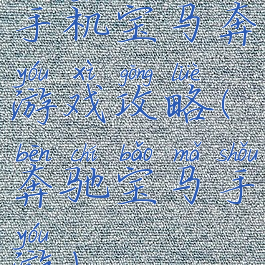 手机宝马奔
yóu xì gōng lüè
游戏攻略(
bēn chí bǎo mǎ shǒu
奔驰宝马手
yóu
游)